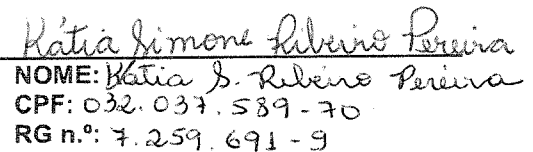 Kátia Simone Ribeiro Pereira
NOME: Kátia S. Ribeiro Pereira
CPF: 032.037.589-70
RG n.º: 7.259.691-9